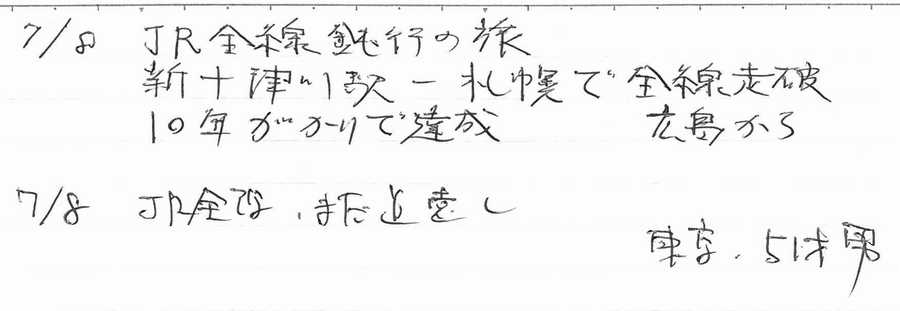 7/8 JR全線鈍行の旅
新十津川駅ー札幌で全線走破
10年がかりで達成 広島から
7/8 JR全線、まだ道遠し
東京、51才男